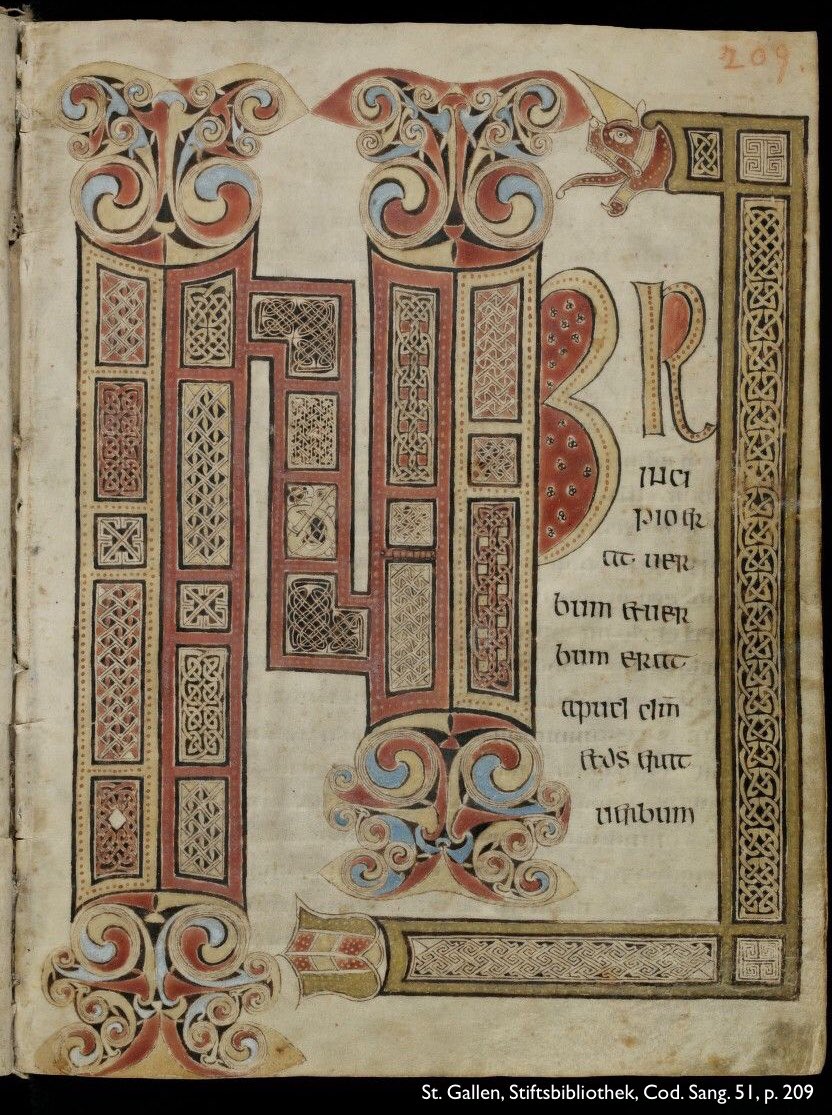 209
INPR
inci
pio er
at uer
bum et uer
bum erat
apud dm̄
et ds erat
uerbum
St. Gallen, Stiftsbibliothek, Cod. Sang. 51, p. 209